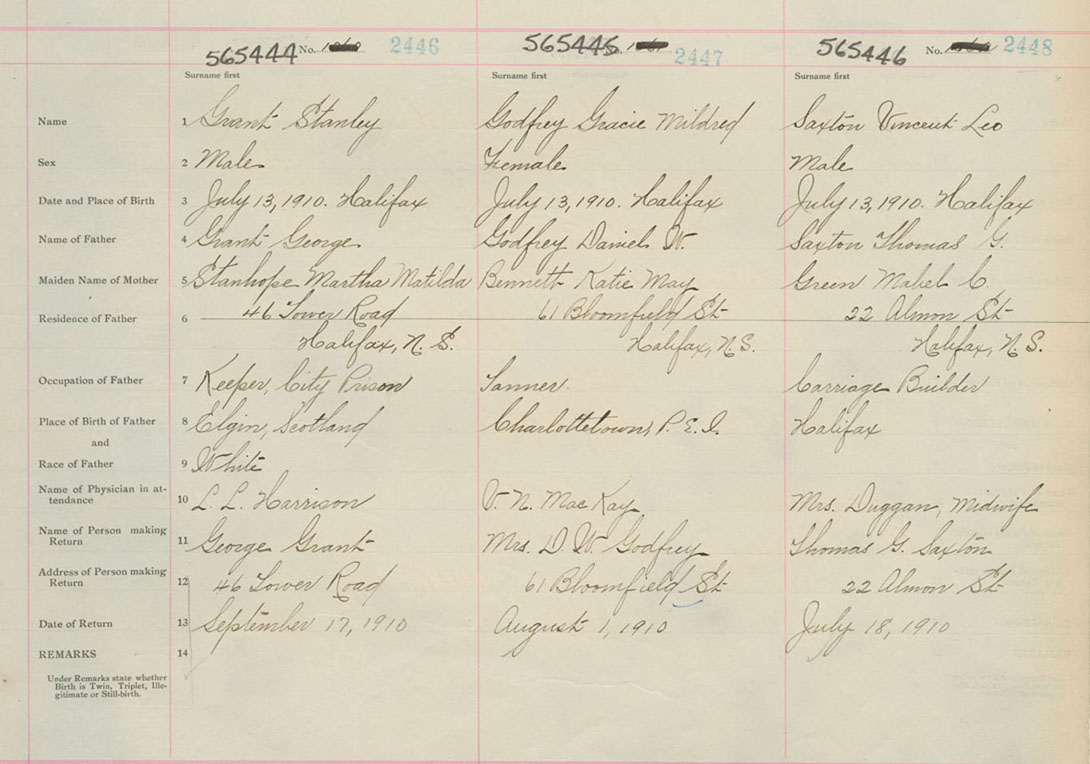 565444 No. 2446 565445 2447 565446 No. 2448
Surname first Surname first Surname first
Name 1 Grant Stanley Godfrey Gracie Mildred Saxton Vincent Leo
Sex 2 Male Female Male
Date and Place of Birth 3 July 13, 1910. Halifax July 13, 1910. Halifax July 13, 1910. Halifax
Name of Father 4 Grant George Godfrey Daniel W. Saxton Thomas G.
Maiden Name of Mother 5 Stanhope Martha Matilda Bennett Katie May Green Mabel C.
Residence of Father 6 46 Tower Road 61 Bloomfield St 22 Almon St
Halifax, N. S. Halifax, N.S. Halifax, N. S.
Occupation of Father 7 Keeper, City Prison Tanner. Carriage Builder
Place of Birth of Father 8 Elgin, Scotland Charlottetown, P. E. I. Halifax
and
Race of Father 9 White
Name of Physician in at-
tendance 10 L. L. Harrison V. N. MacKay Mrs. Duggan, Midwife
Name of Person making
Return 11 George Grant Mrs. D. W. Godfrey Thomas G. Saxton
Address of Person making
Return 12 46 Tower Road 61 Bloomfield St 22 Almon St
Date of Return 13 September 17, 1910 August 1, 1910 July 18, 1910
REMARKS 14
Under Remarks state whether
Birth is Twin, Triplet, Ille-
gitimate or Still-birth.